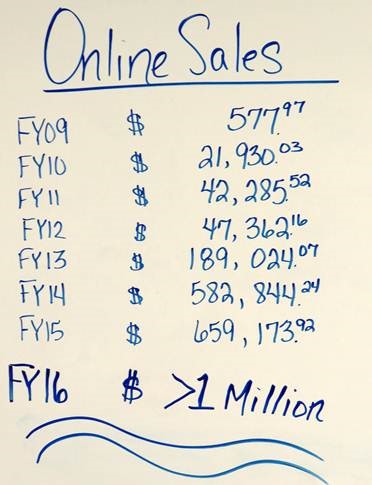 Online Sales
FY09 $ 577.97
FY10 $ 21,930.03
FY11 $ 42,285.52
FY12 $ 47,362.16
FY13 $ 189,024.07
FY14 $ 582,844.24
FY15 $ 659,173.92
FY16 $ >1 Million